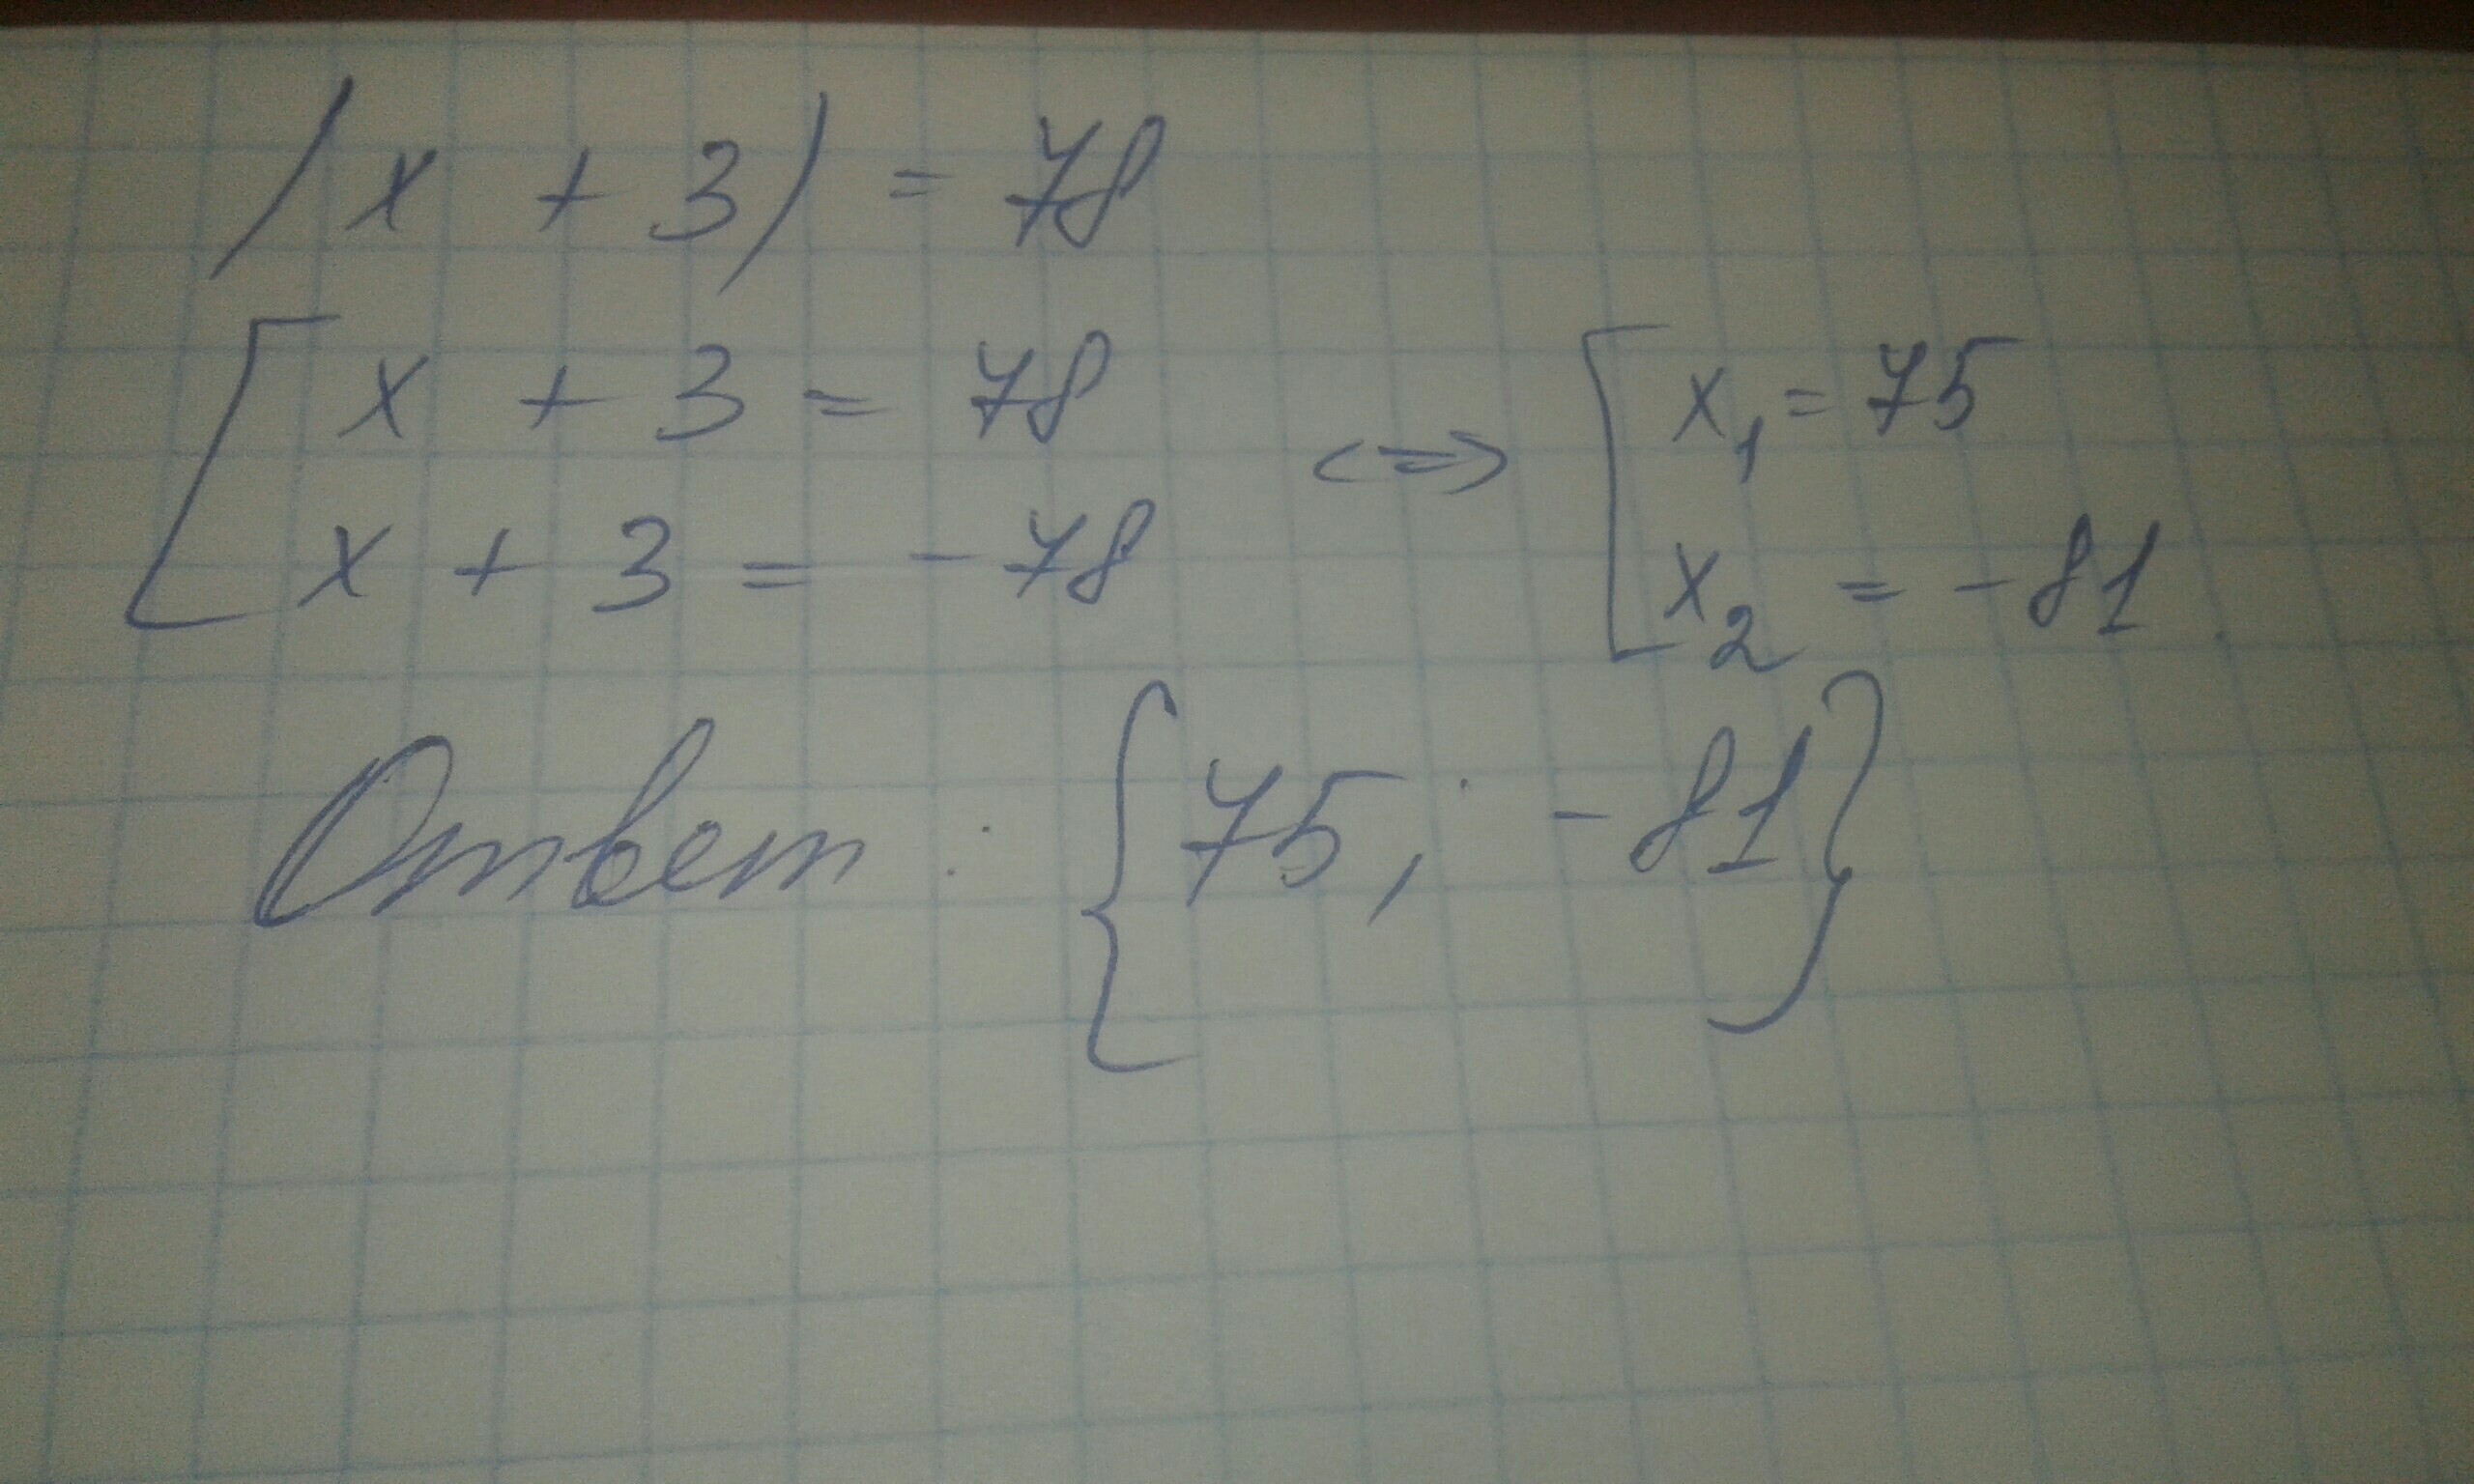 |x + 3| = 78
[ x + 3 = 78
x + 3 = -78 <=> [ x₁ = 75
x₂ = -81
Ответ: {75; -81}